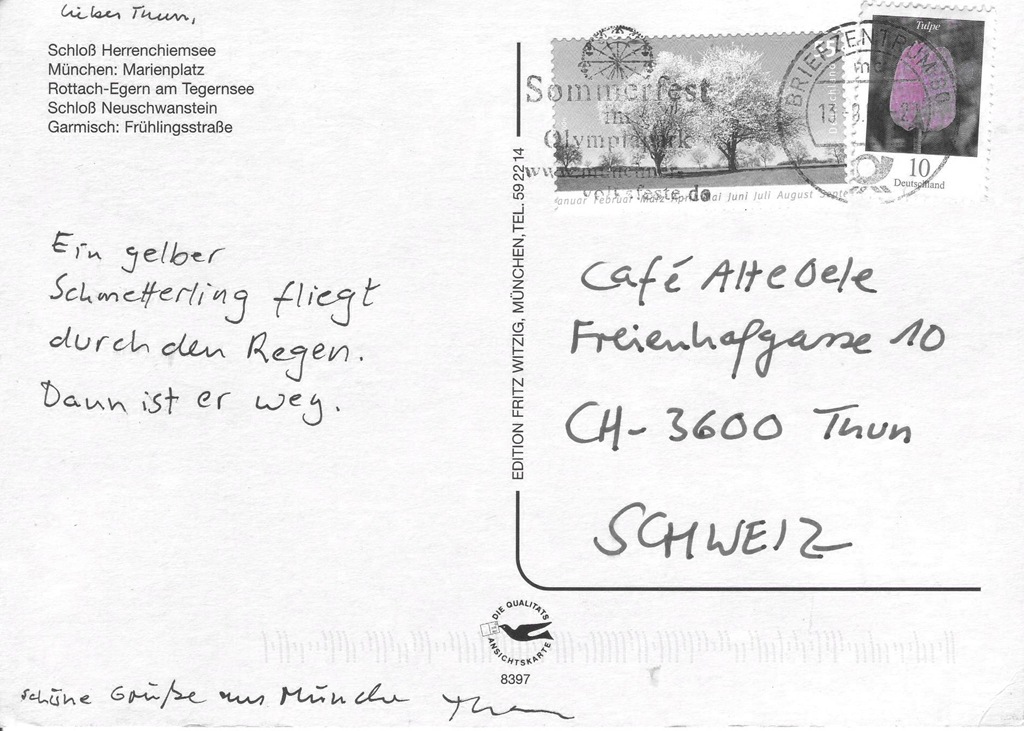 Lieber Thun,
Schloß Herrenchiemsee
München: Marienplatz
Rottach-Egern am Tegernsee
Schloß Neuschwanstein
Garmisch: Frühlingsstraße
Ein gelber
Schmetterling fliegt
durch den Regen.
Dann ist er weg.
schöne Grüße aus München
EDITION FRITZ WITZIG, MÜNCHEN, TEL. 59 22 14
Sommerfest
im
Olympiapark
www.münchner-
volksfeste.de
Januar Februar März April Mai Juni Juli August Septe
BRIEFZENTRUM 80
Tulpe
10
Deutschland
Café Alte Oele
Freienhofgasse 10
CH-3600 Thun
SCHWEIZ
DIE QUALITÄTS
ANSICHTSKARTE
8397